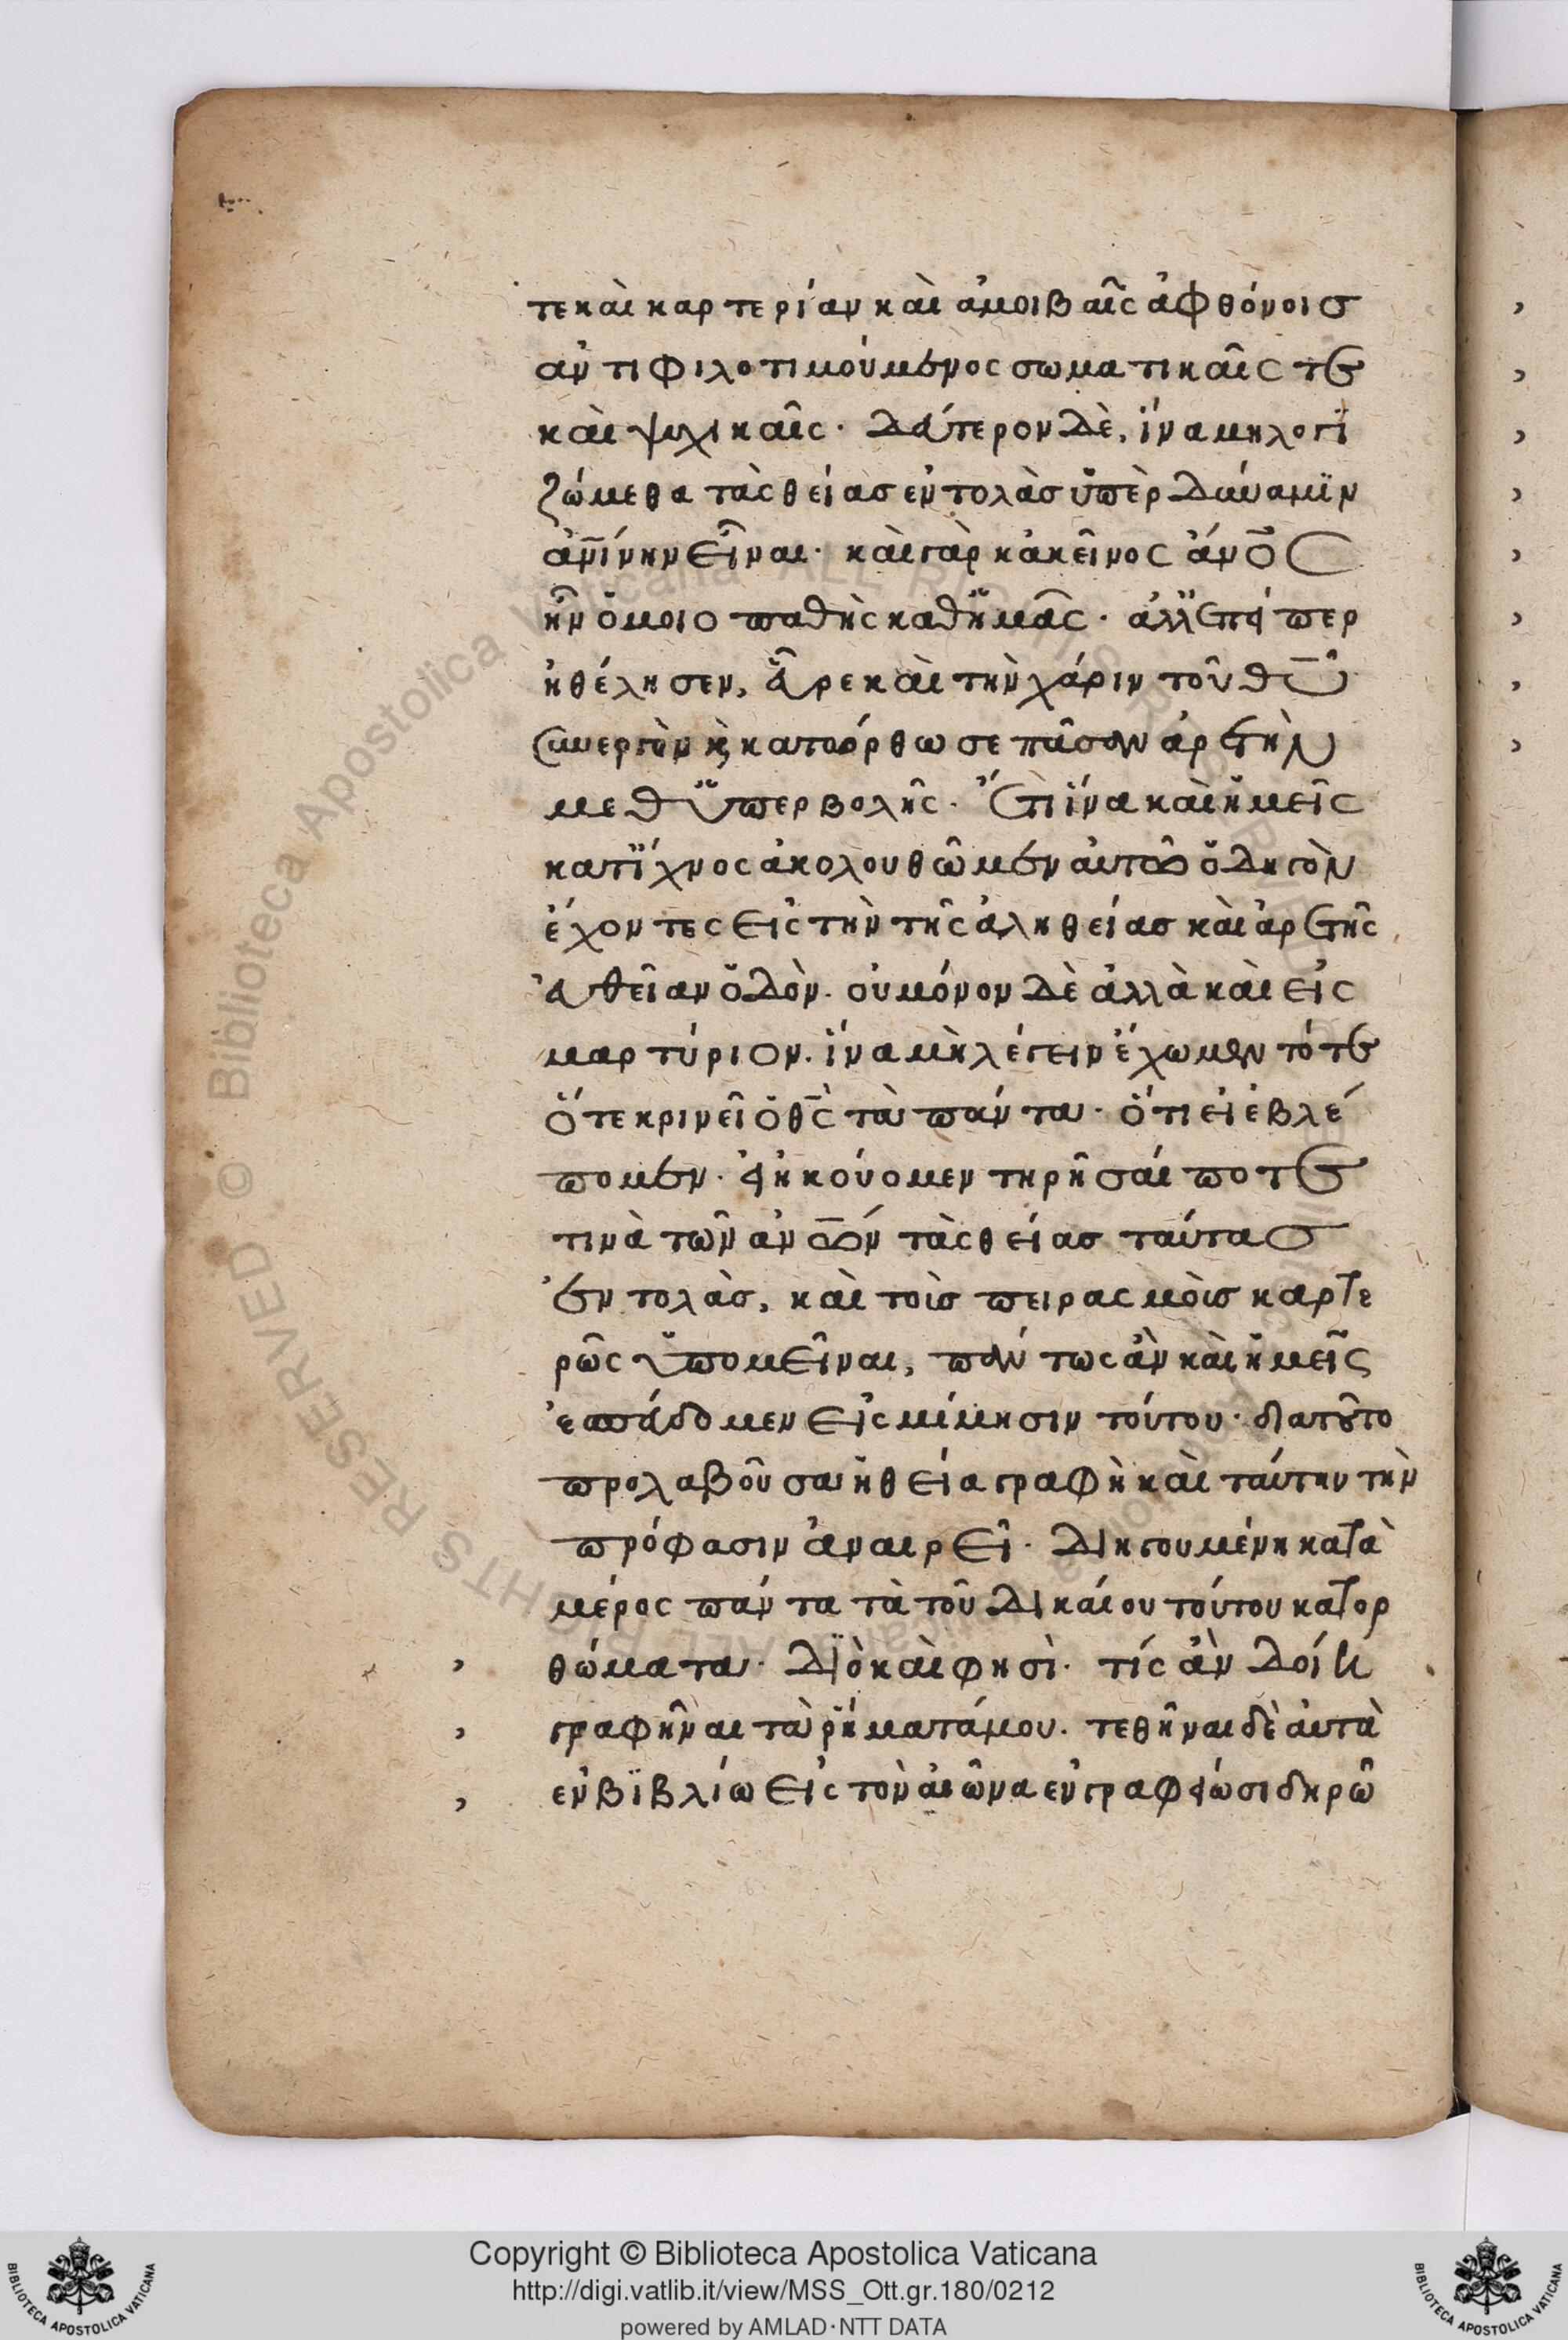 τε καὶ καρτερίαν καὶ ἀμοιβαῖς ἀφθόνοις
ἀντιφιλοτιμούμενος σωματικαῖς τε
καὶ ψυχικαῖς· δεύτερον δὲ, ἵνα μὴ λογϊ
ζώμεθα τὰς θείας ἐντολὰς ὑπὲρ δύναμϊν
ἀνίνην εἶναι· καὶ γὰρ κἀκεῖνος ἄνος
ἦν ὁμοιοπαθὴς καθ ἡμᾶς· ἀλλ ἐπείπερ
ἠθέλησεν, εὗρε καὶ τὴν χάριν τοῦ θυ
συνεργὸν κ̀ κατώρθωσε πᾶσαν ἀρετὴν
μεθ ὑπερβολῆς· ἔτι ἵνα καὶ ἡμεῖς
κατ ἴχνος ἀκολουθῶμεν αὐτῶ ὁδηγὸν
ἔχοντες εἰς τὴν τῆς ἀληθείας καὶ ἀρετῆς
εὐθεῖαν ὁδὸν· οὐ μόνον δὲ ἀλλὰ καὶ εἰς
μαρτύριον· ἵνα μὴ λέγειν ἔχωμεν τότε
ὅτε κρινεῖ ὁ θς τὰ πάντα· ὅτι εἰ ἐβλέ
πομεν· εἰ ἠκούομεν τηρῆσαί ποτε
τινὰ τῶν ἀνων τὰς θείας ταύτας
ἐντολὰς, καὶ τοὶς πειρασμὸις καρτε
ρῶς ὑπομεῖναι, πάντως ἂν καὶ ἡμεῖς
ἐσπεύδομεν εἰς μίμησιν τούτου· διατοῦτο
προλαβοῦσα ἡ θεία γραφὴ καὶ ταύτην τὴν
πρόφασιν ἀναιρεῖ· διηγουμένη κατὰ
μέρος πάντα τὰ τοῦ δικαίου τούτου κατορ
θώματα· διὸ καὶ φησὶ· τίς ἂν δοίη
γραφῆναι τὰ ῥήματά μου· τεθῆναι δὲ αὐτὰ
ἐν βϊβλίω εἰς τὸν αἰῶνα ἐν γραφείω σιδηρῶ
Copyright © Biblioteca Apostolica Vaticana
http://digi.vatlib.it/view/MSS_Ott.gr.180/0212
powered by AMLAD·NTT DATA